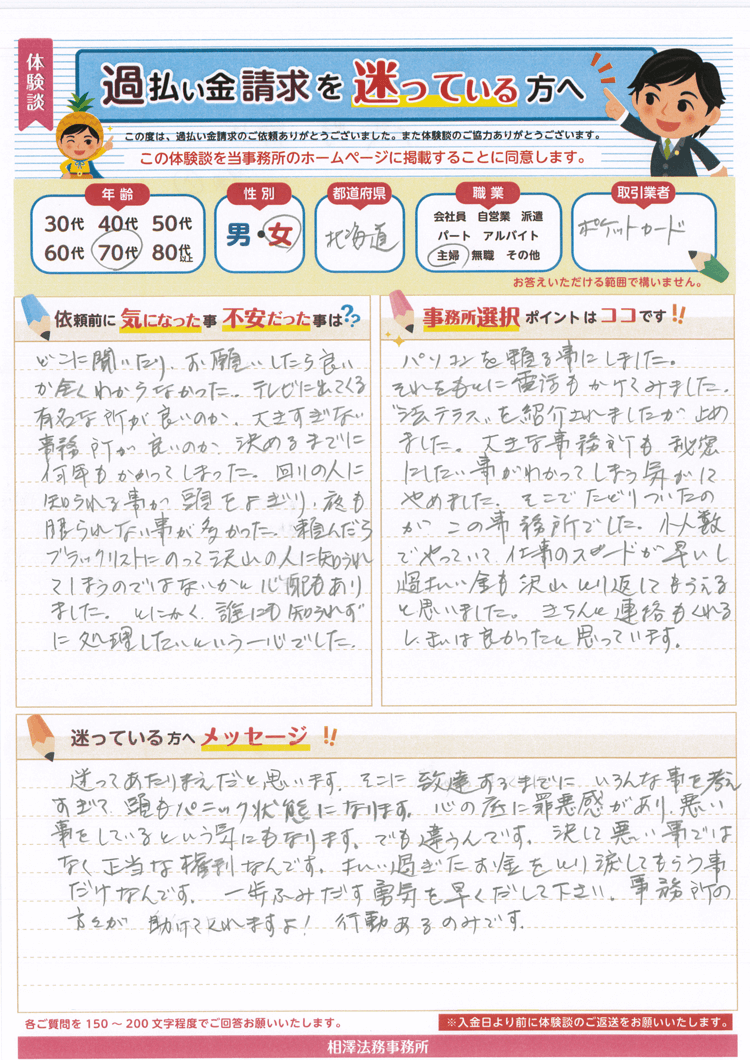 体験談
過払い金請求を迷っている方へ
この度は、過払い金請求のご依頼ありがとうございました。また体験談のご協力ありがとうございます。
この体験談を当事務所のホームページに掲載することに同意します。
年齢
30代 40代 50代
60代 70代 80代以上
性別
男・女
都道府県
北海道
職業
会社員 自営業 派遣
パート アルバイト
主婦 無職 その他
取引業者
ポケットカード
お答えいただける範囲で構いません。
依頼前に気になった事不安だった事は??
どこに聞いたり、お願いしたら良い
か全くわからなかった。テレビに出てくる
有名な所が良いのか、大きすぎない
事務所が良いのか決めるまでに
何年もかかってしまった。回りの人に
知られる事が頭をよぎり、夜も
眠られない事が多かった。頼んだら
ブラックリストにのって沢山の人に知られ
てしまうのではないかと心配もあり
ました。とにかく、誰にも知られずに
に処理したいという一心でした。
事務所選択ポイントはココです!!
パソコンを頼る事にしました。
それをもとに電話もかけてみました。
“法テラス”を紹介されましたが止め
ました。大きな事務所も秘密
にしたい事がわかってしまう気がして
やめました。そこでたどりついたの
がこの事務所でした。小人数
でやっていて仕事のスピードが早いし
過払い金も沢山とり返してもらえる
と思いました。きちんと連絡もくれる
し、まいは良かったと思っています。
迷っている方へメッセージ!!
迷ってあたりまえだと思います。そこに致達するまでに いろんな事を考え
すぎて 頭もパニック状態になります。心の底に罪悪感があり、悪い
事をしているという気にもなります。でも違うんです。決して悪い事では
なく正当な権利なんです。払い過ぎたお金をとり戻してもらう事
だけなんです。一歩ふみだす勇気を早くだして下さい。事務所の
方々が 助けてくれますよ! 行動あるのみです。
各ご質問を150〜200文字程度でご回答お願いいたします。
※入金日より前に体験談のご返送をお願いいたします。
相澤法務事務所